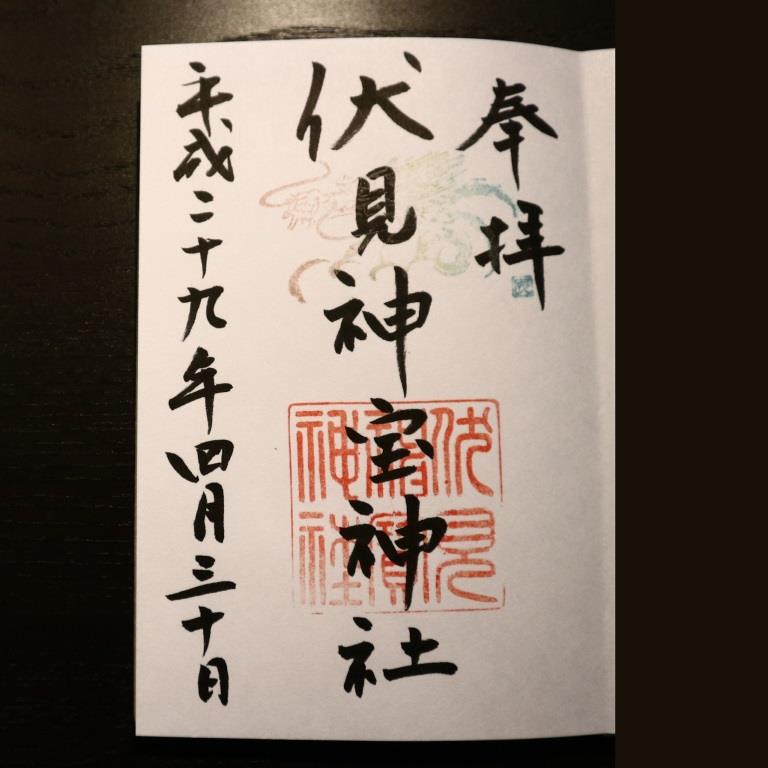 奉拝
伏見神宝神社
平成二十九年四月三十日
伏見
神寳
神社